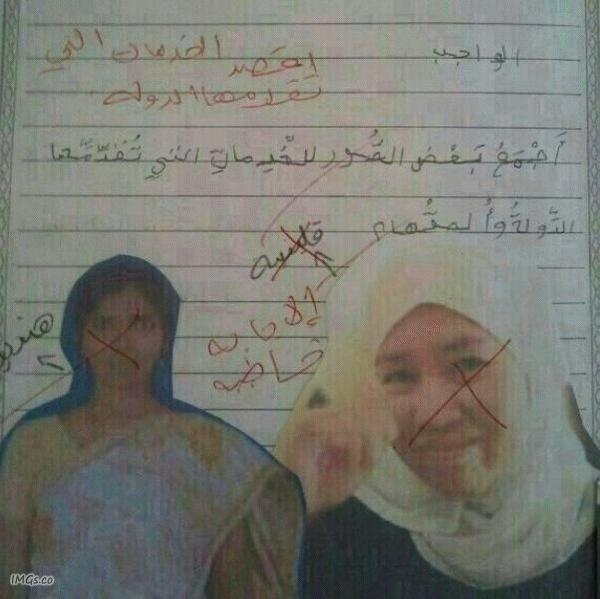 الواجب
اقصد الخدمات التي
تقدمها الدولة
أَجْمَعُ بَعْضَ الصُّور للخِدماتِ التي تُقدِّمُها
الدَّولةُ وأُلصقُها
الإجابه
خاطئه
IMGs.co